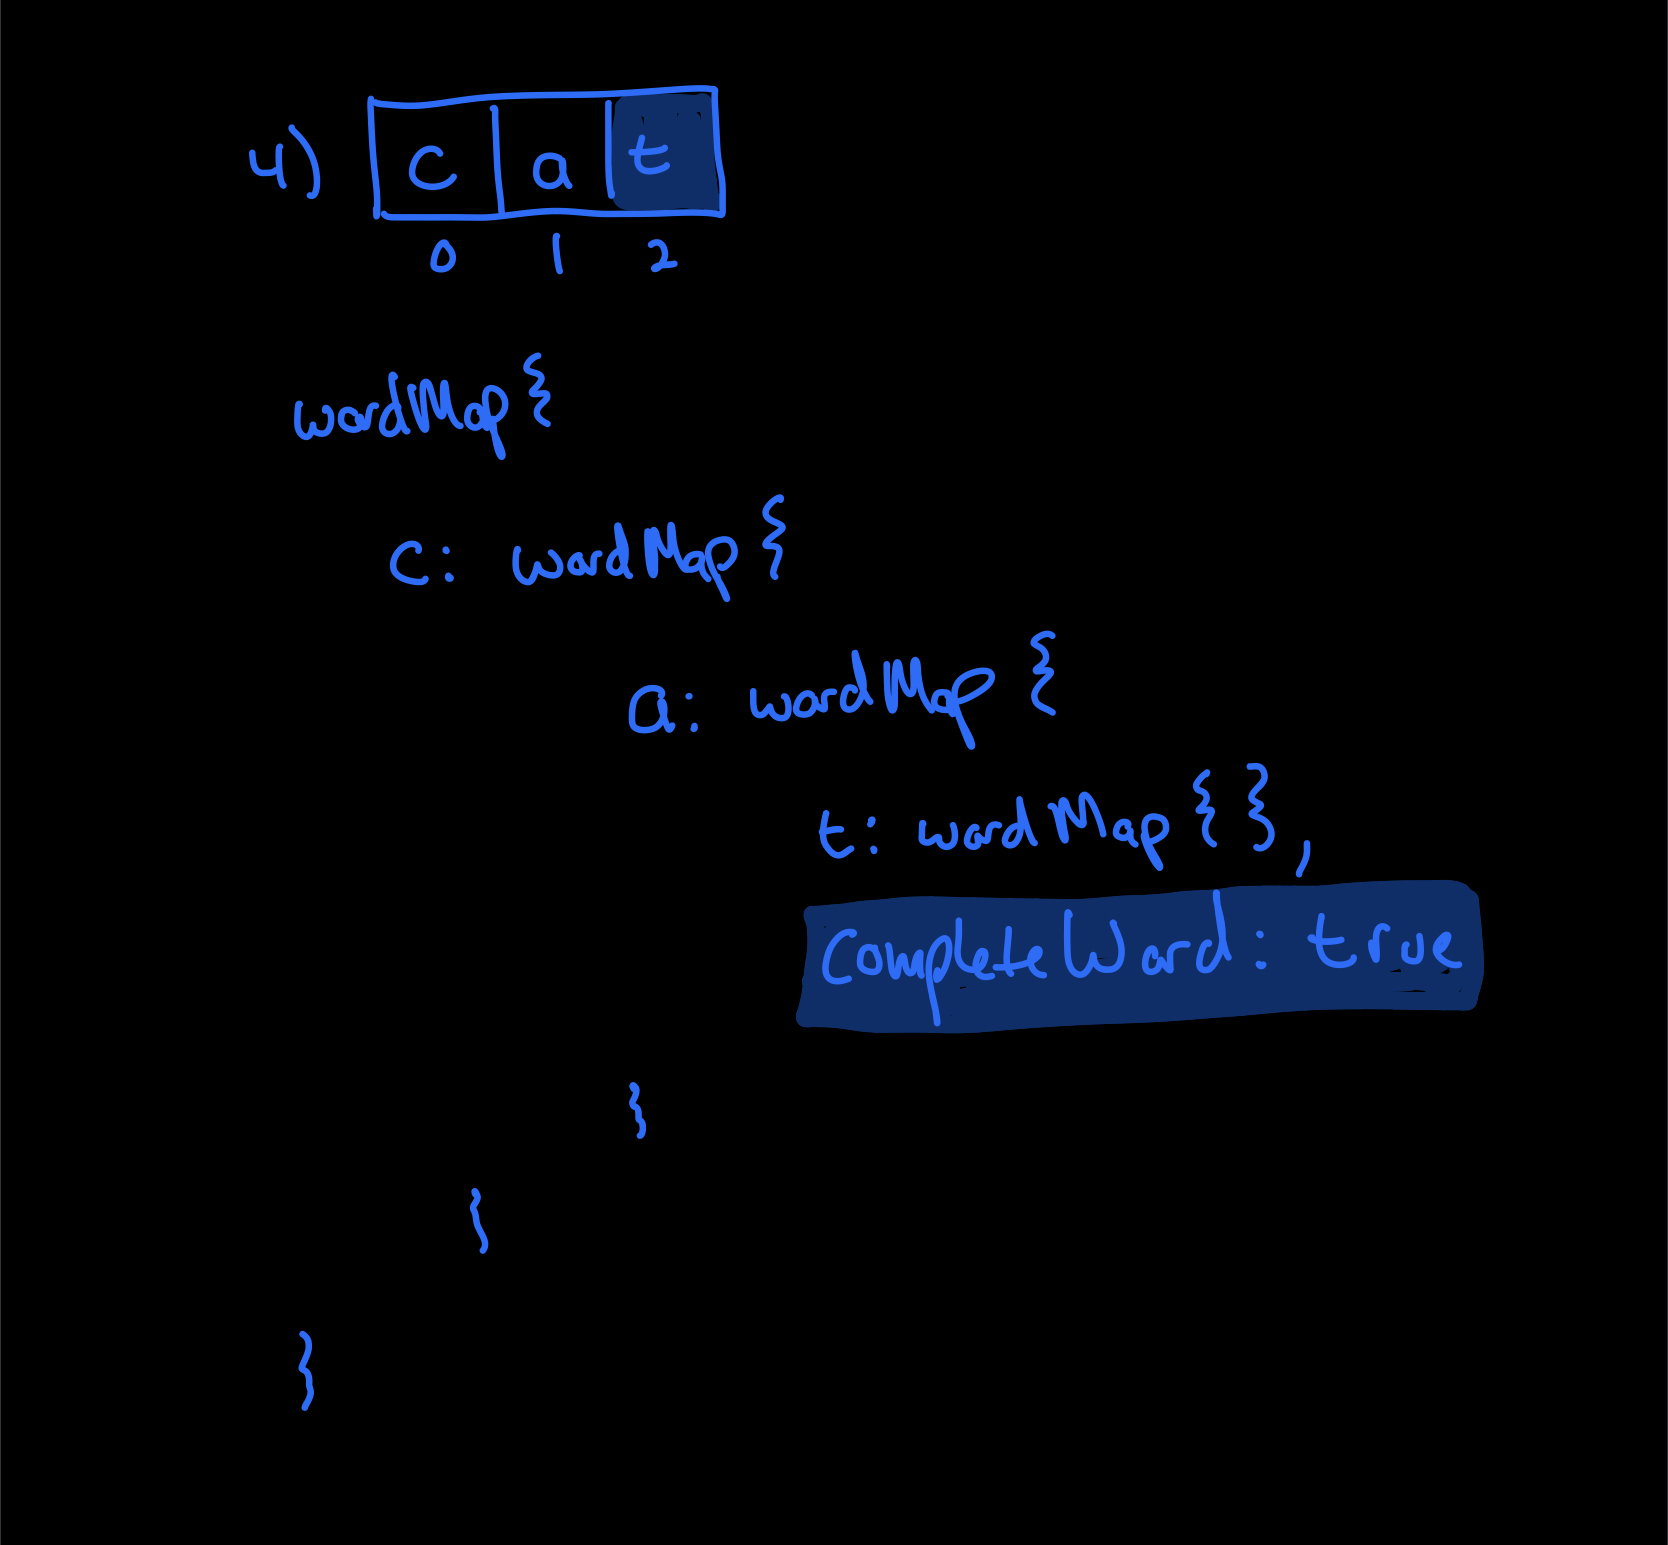 4) c a t
0 1 2
wordMap{
c: wordMap{
a: wordMap{
t: wordMap{},
completeWord: true
}
}
}